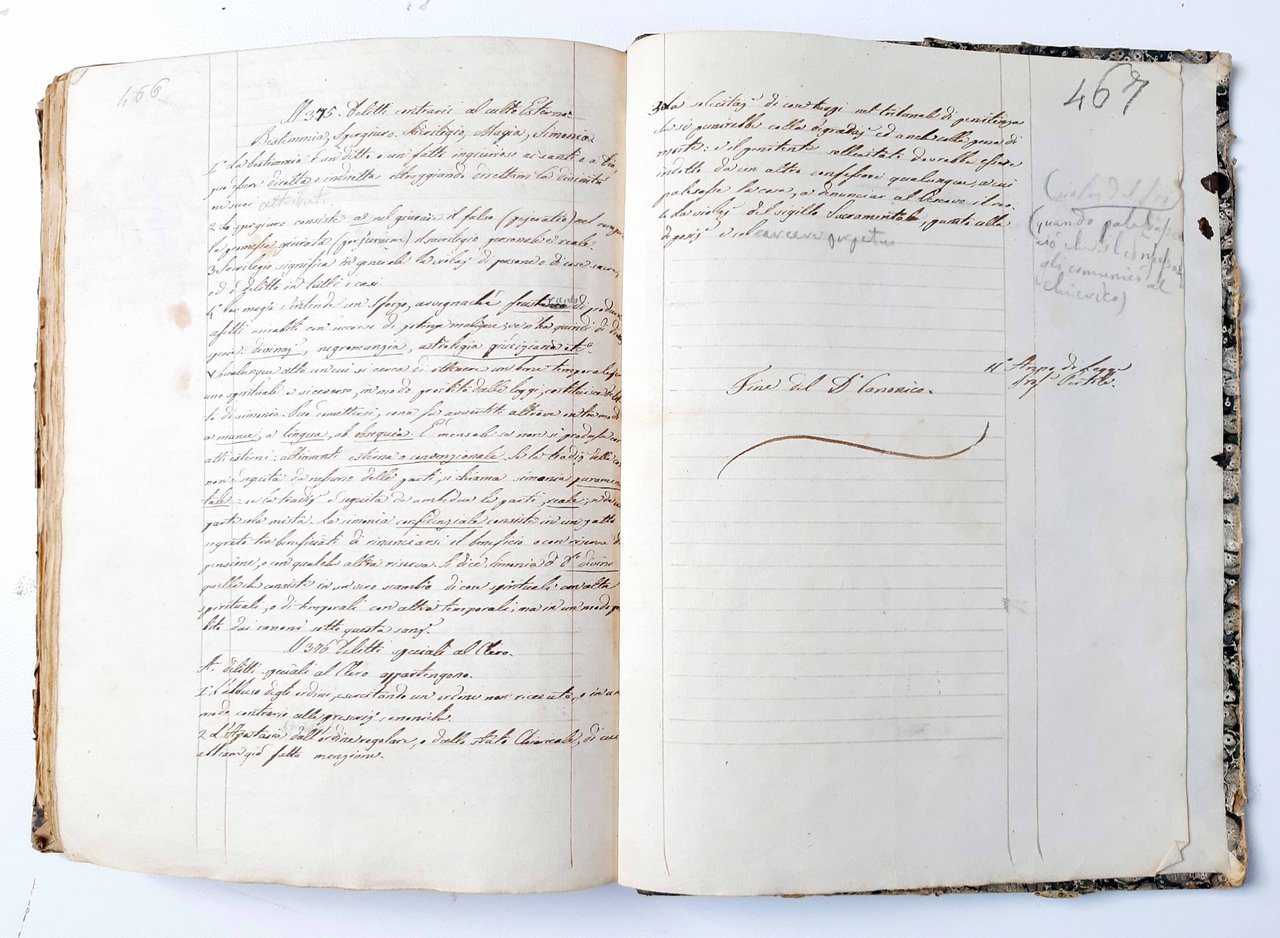 466
§ 375. Delitti contrarii al culto Esterno.
Bestemmia, Spergiuro, Sacrilegio, Magia, Simonia.
1. La bestemmia è un detto o un fatto ingiurioso ai santi o a Dio
può esser diretta o indiretta oltraggiando la divinità
ne' suoi attributi.
2. Lo spergiuro consiste nel giurare il falso (pejeratio) nel
la promessa giurata (perjurium) il sacrilegio personale e reale.
3. Sacrilegio significa in generale la violaz. di persone o di cose sacre,
ed è delitto in tutti i casi.
4. Per magia s'intende un sforzo, avvegnachè di produrre
effetti mirabili con di potenze maligne;
divinaz., negromanzia, astrologia giudiziaria etc.
Qualunque atto in cui si cerca di ottenere un bene temporale per
uno spirituale e viceversa, in modo proibito dalle leggi, costituisce il
to di simonia. Può avvertito altrove in tre modi
a manu, a lingua, ab obsequio. È mentale se non si
atti esterni: altrimenti esterna o convenzionale. Se la tradiz. delle cose
non è seguita da nessuna delle parti, si chiama simonia puramen
tale: se la tradiz. è seguita da ambedue le parti, reale; se da una
parte sola mista. La simonia confidenziale consiste in un patto
segreto tra beneficiati di rinunciarsi il beneficio o con riserva di
pensione, o con qualche altra riserva. Si dice simonia di D.o divino
quella che consiste in un vero scambio di cose spirituali con altre
spirituali, o di temporali con altre temporali ma in un modo proi
bito dai canoni sotto questa sanz.e
§ 376 Delitti speciali al Clero.
A' delitti speciali al Clero appartengono.
1. L'abuso degli ordini, esercitando un ordine non ricevuto, o in un
modo contrario alle prescriz. canoniche.
2. L'Apostasia dall'ordine regolare, o dallo stato Chiericale, di cui
abbiam già fatta menzione.
467
3. La sollecitaz. di cose turpi nel tribunale di penitenza
che si punirebbe colla degradaz. ed anche colla pena di
morte: e il penitente sollecitato dovrebbe essere
indotto da un altro confessore qualunque, a cui
palesasse la cosa, a denunciar al Vescovo il reo.
4. La violaz. del sigillo Sacramentale, punito colla
e col carcere perpetuo
(violaz. del sigillo
(quando palesasse
ciò che il
gli comunicò al
Chierico)
Fine del D.o Canonico.